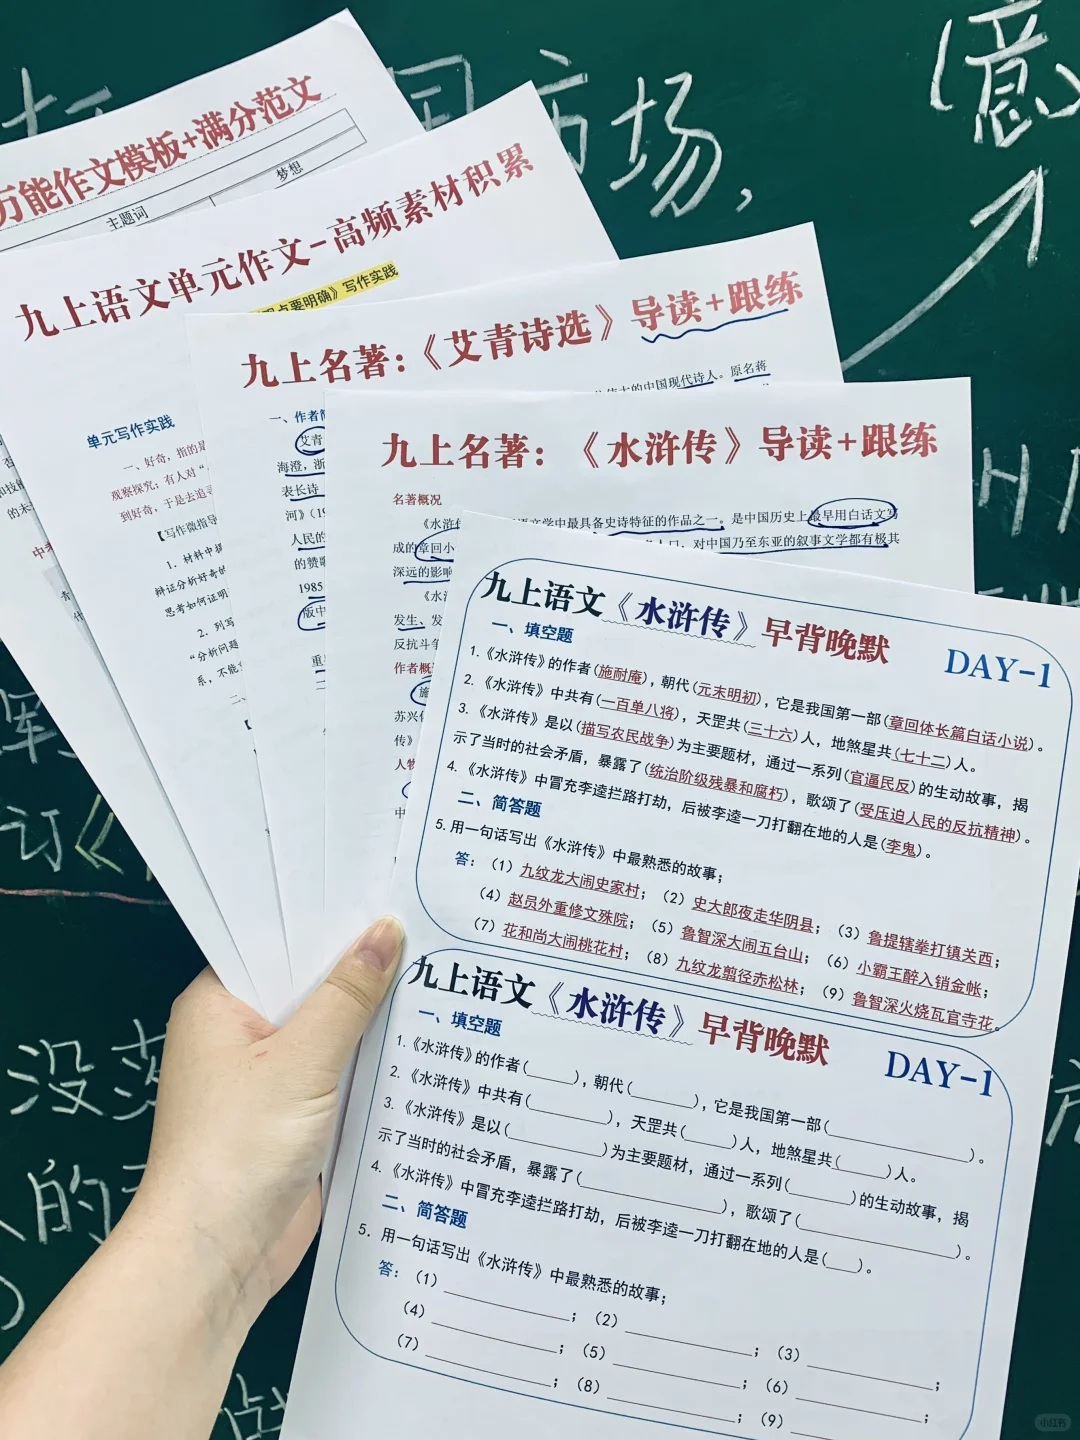 市场，
（意）
万能作文模板+满分范文
主题词
梦想
九上语文单元作文-高频素材积累
点要明确》写作实践
单元写作实践
一、好奇，指的是
观察探究；有人对“
到好奇，于是去追寻
【写作微指导
1. 材料中提
辩证分析好奇的
思考如何证明
2. 列写
“分析问题
系，不能
九上名著：《艾青诗选》导读+跟练
的中国现代诗人。原名蒋
一、作者简
艾青
海澄，浙
表长诗
河》（19
人民的
的赞歌
1985
版中
九上名著：《水浒传》导读+跟练
名著概况
《水浒传
语文学中最具备史诗特征的作品之一。是中国历史上最早用白话文写
成的章回小
人口，对中国乃至东亚的叙事文学都有极其
深远的影响
《水浒
发生、发
反抗斗争
作者概
施
苏兴化
传》
人物
中
九上语文《水浒传》早背晚默
DAY-1
一、填空题
1.《水浒传》的作者(施耐庵)，朝代(元末明初)，它是我国第一部(章回体长篇白话小说)。
2.《水浒传》中共有(一百单八将)，天罡共(三十六)人，地煞星共(七十二)人。
3.《水浒传》是以(描写农民战争)为主要题材，通过一系列(官逼民反)的生动故事，揭
示了当时的社会矛盾，暴露了(统治阶级残暴和腐朽)，歌颂了(受压迫人民的反抗精神)。
4.《水浒传》中冒充李逵拦路打劫，后被李逵一刀打翻在地的人是(李鬼)。
二、简答题
5.用一句话写出《水浒传》中最熟悉的故事；
答：（1）九纹龙大闹史家村；（2）史大郎夜走华阴县；（3）鲁提辖拳打镇关西；
（4）赵员外重修文殊院；（5）鲁智深大闹五台山；（6）小霸王醉入销金帐；
（7）花和尚大闹桃花村；（8）九纹龙剪径赤松林；（9）鲁智深火烧瓦官寺花。
九上语文《水浒传》早背晚默
DAY-1
一、填空题
1.《水浒传》的作者(____)，朝代(____)，它是我国第一部(____)。
2.《水浒传》中共有(____)，天罡共(____)人，地煞星共(____)人。
3.《水浒传》是以(____)为主要题材，通过一系列(____)的生动故事，揭
示了当时的社会矛盾，暴露了(____)，歌颂了(____)。
4.《水浒传》中冒充李逵拦路打劫，后被李逵一刀打翻在地的人是(____)。
二、简答题
5. 用一句话写出《水浒传》中最熟悉的故事；
答：（1）____；（2）____；（3）____；
（4）____；（5）____；（6）____；
（7）____；（8）____；（9）
订《
没落
人的
小红书